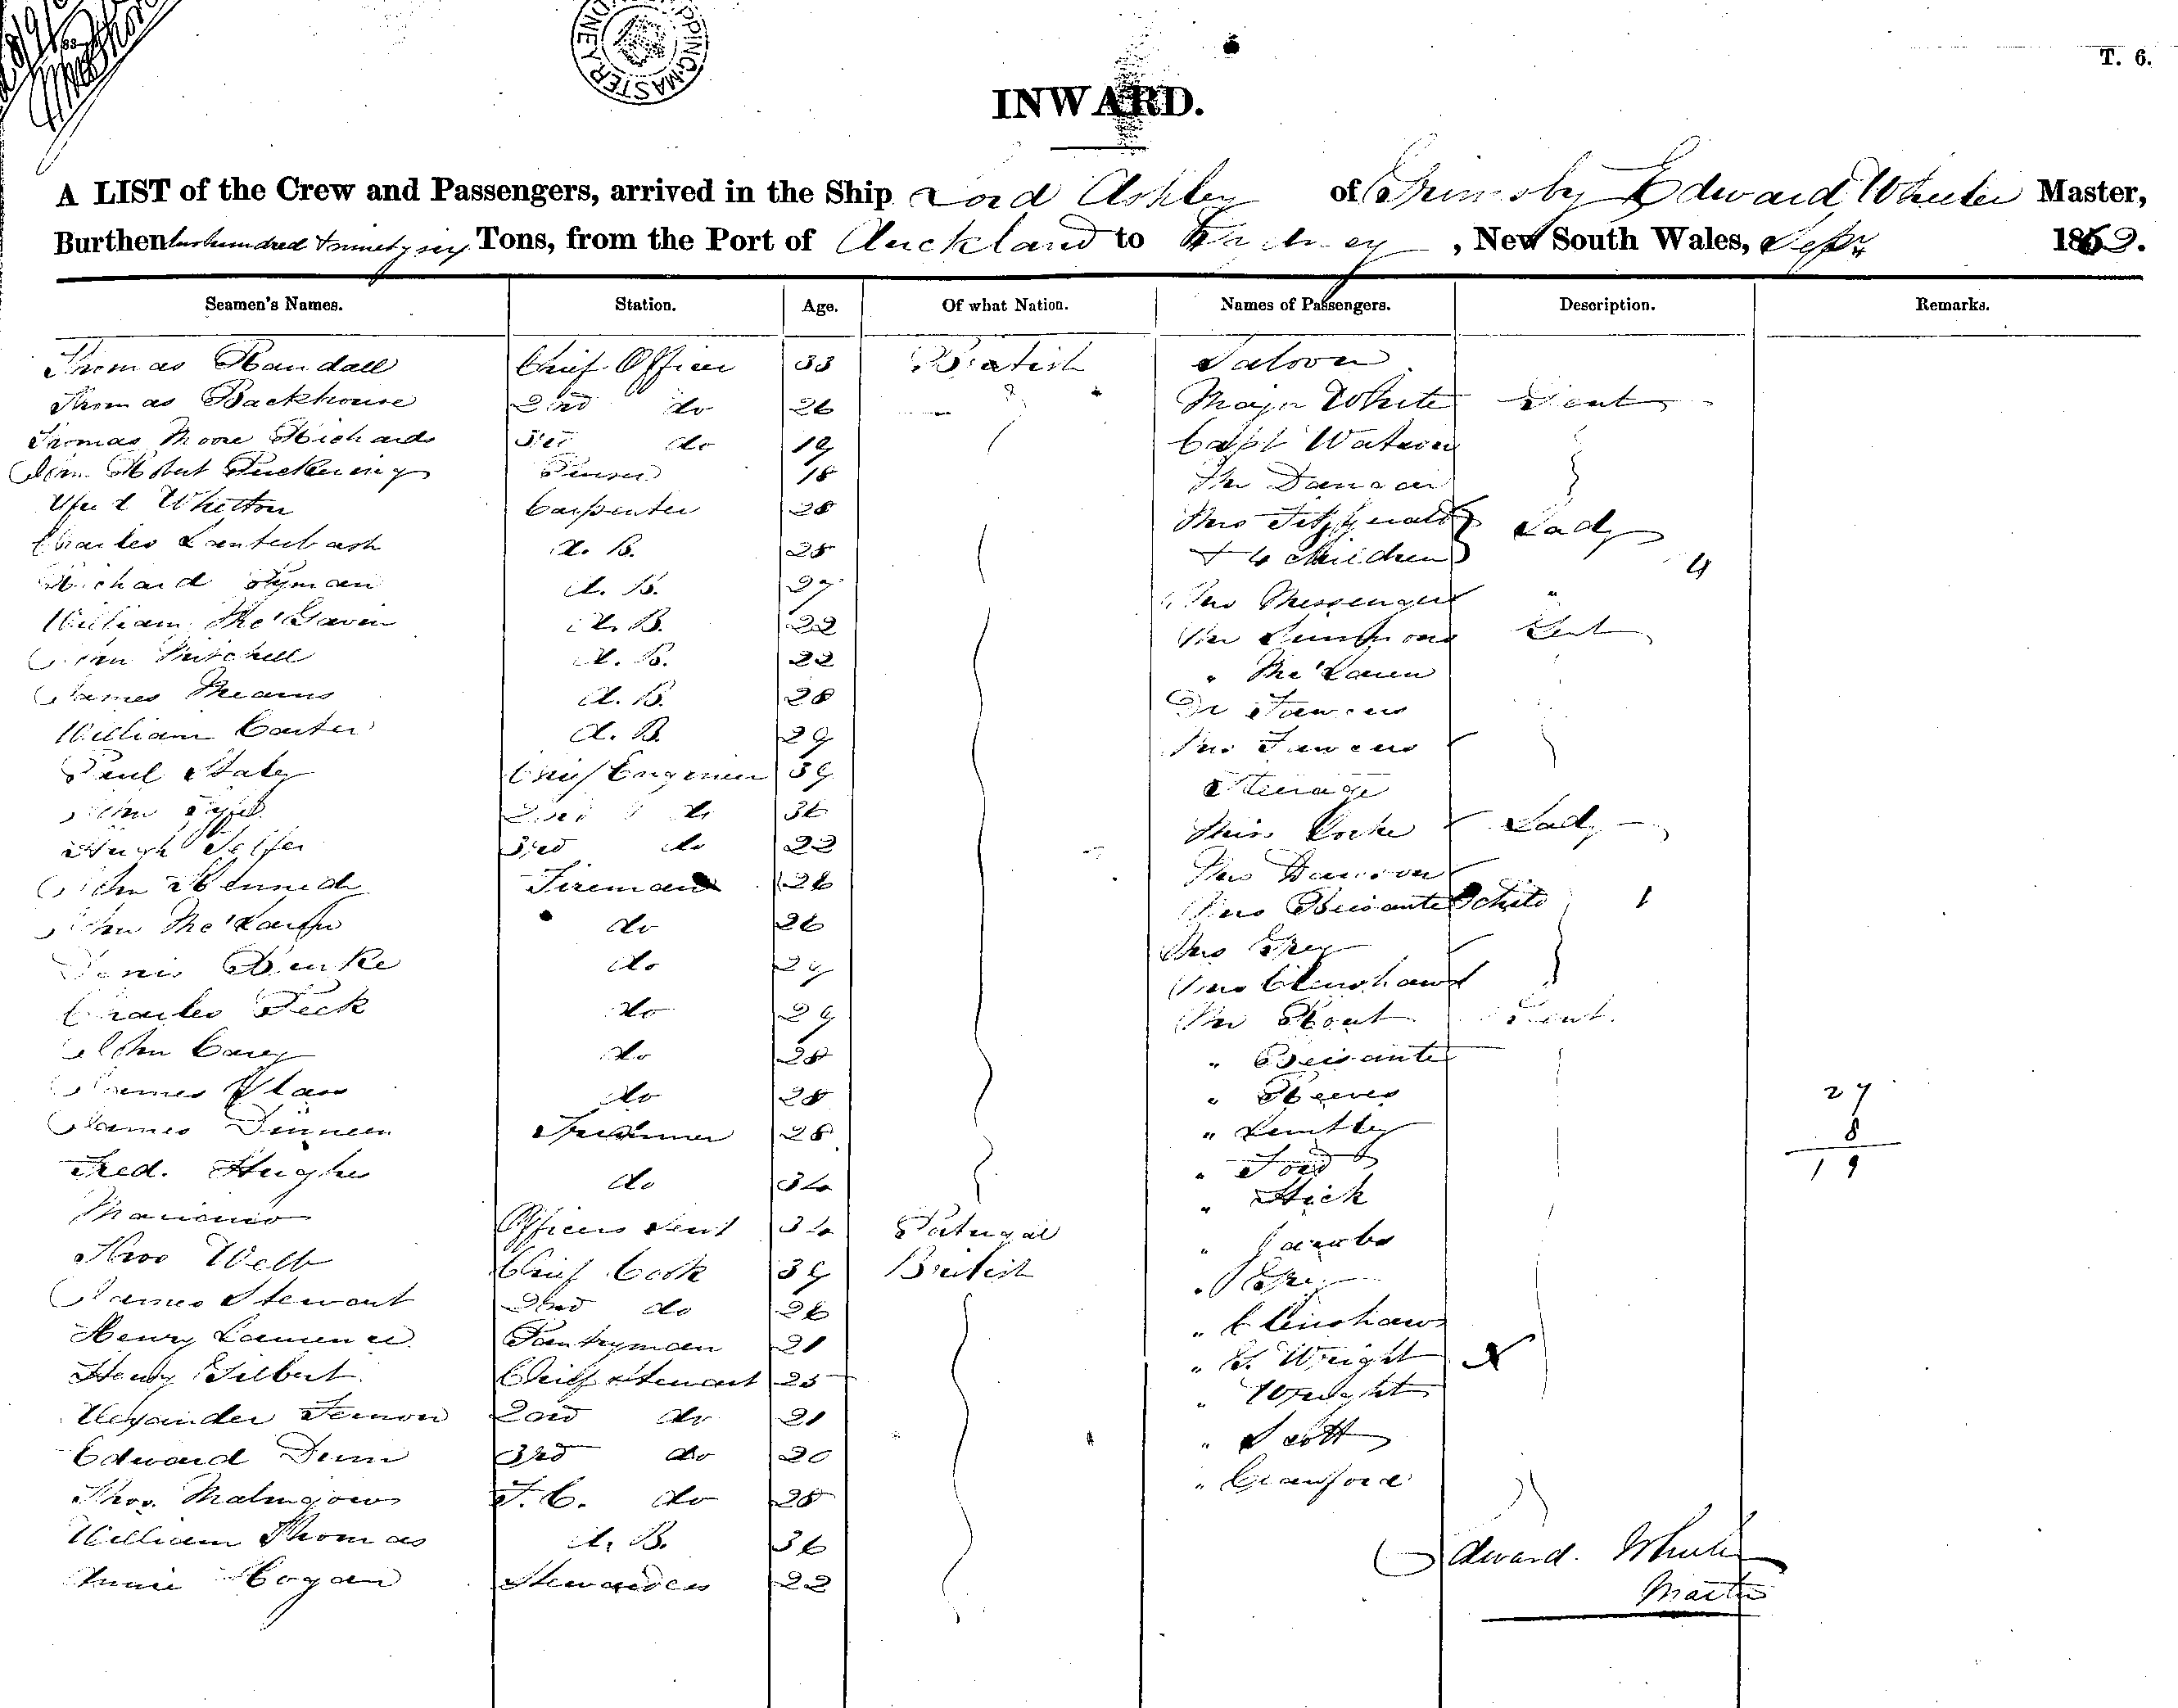 SHIPPING MASTER SYDNEY
T. 6.
INWARD.
A LIST of the Crew and Passengers, arrived in the Ship Lord Ashley of Grimsby Edward Wheeler Master,
Burthen two hundred & ninety six Tons, from the Port of Auckland to Sydney, New South Wales, Sepr 1863.
Seamen's Names. Station. Age. Of what Nation. Names of Passengers. Description. Remarks.
Thomas Randall Chief Officer 33 British Saloon
Thomas Backhouse 2nd do 26 Major White Gent
Thomas Moore Richards 3rd do 19 Capt Watson
John Robert Puckering Purser 18 Mr
Whitton Carpenter 28 Mrs Fitzgerald Lady
Charles Lauterbach A. B. 28 + 4 Children 4
Richard Pyman A. B. 27 Mrs Messenger "
William McGavin A. B. 22 Mr Simmons Gent
John Mitchell A. B. 22 " McLaren
James Mearns A. B. 28 Dr
William Carter A. B. 29 Mrs
Paul Staley Chief Engineer 39 Steerage
John 2nd do 36 Miss Locke Lady
Hugh Telfer 3rd do 22 Mrs Dawson
John Kennedy Fireman 26 Mrs Child 1
John McLaren do 26 Mrs Grey
Denis Burke do 29 Mrs Clenshaw
Charles Peck do 29 Mr Gent.
John Carey do 28 "
James do 28 " Reeves 27
James Dinneen Trimmer 28 " 8
Fred. Hughes do 34 " Ford 19
Officers Servt 34 Portugal " Hick
Thos Webb Chief Cook 39 British " Jacobs
James Stewart 2nd do 26 " Grey
Henry Laurence Pantryman 21 " Clenshaw
Henry Gilbert Chief Steward 25 " Wright X
Alexander Vernon 2nd do 21 " Wright
Edward Dunn 3rd do 20 " Scott
Thos. F. C. do 28 " Crawford
William Thomas A. B. 36
Annie Hogan Stewardess 22
Edward Wheeler
Master